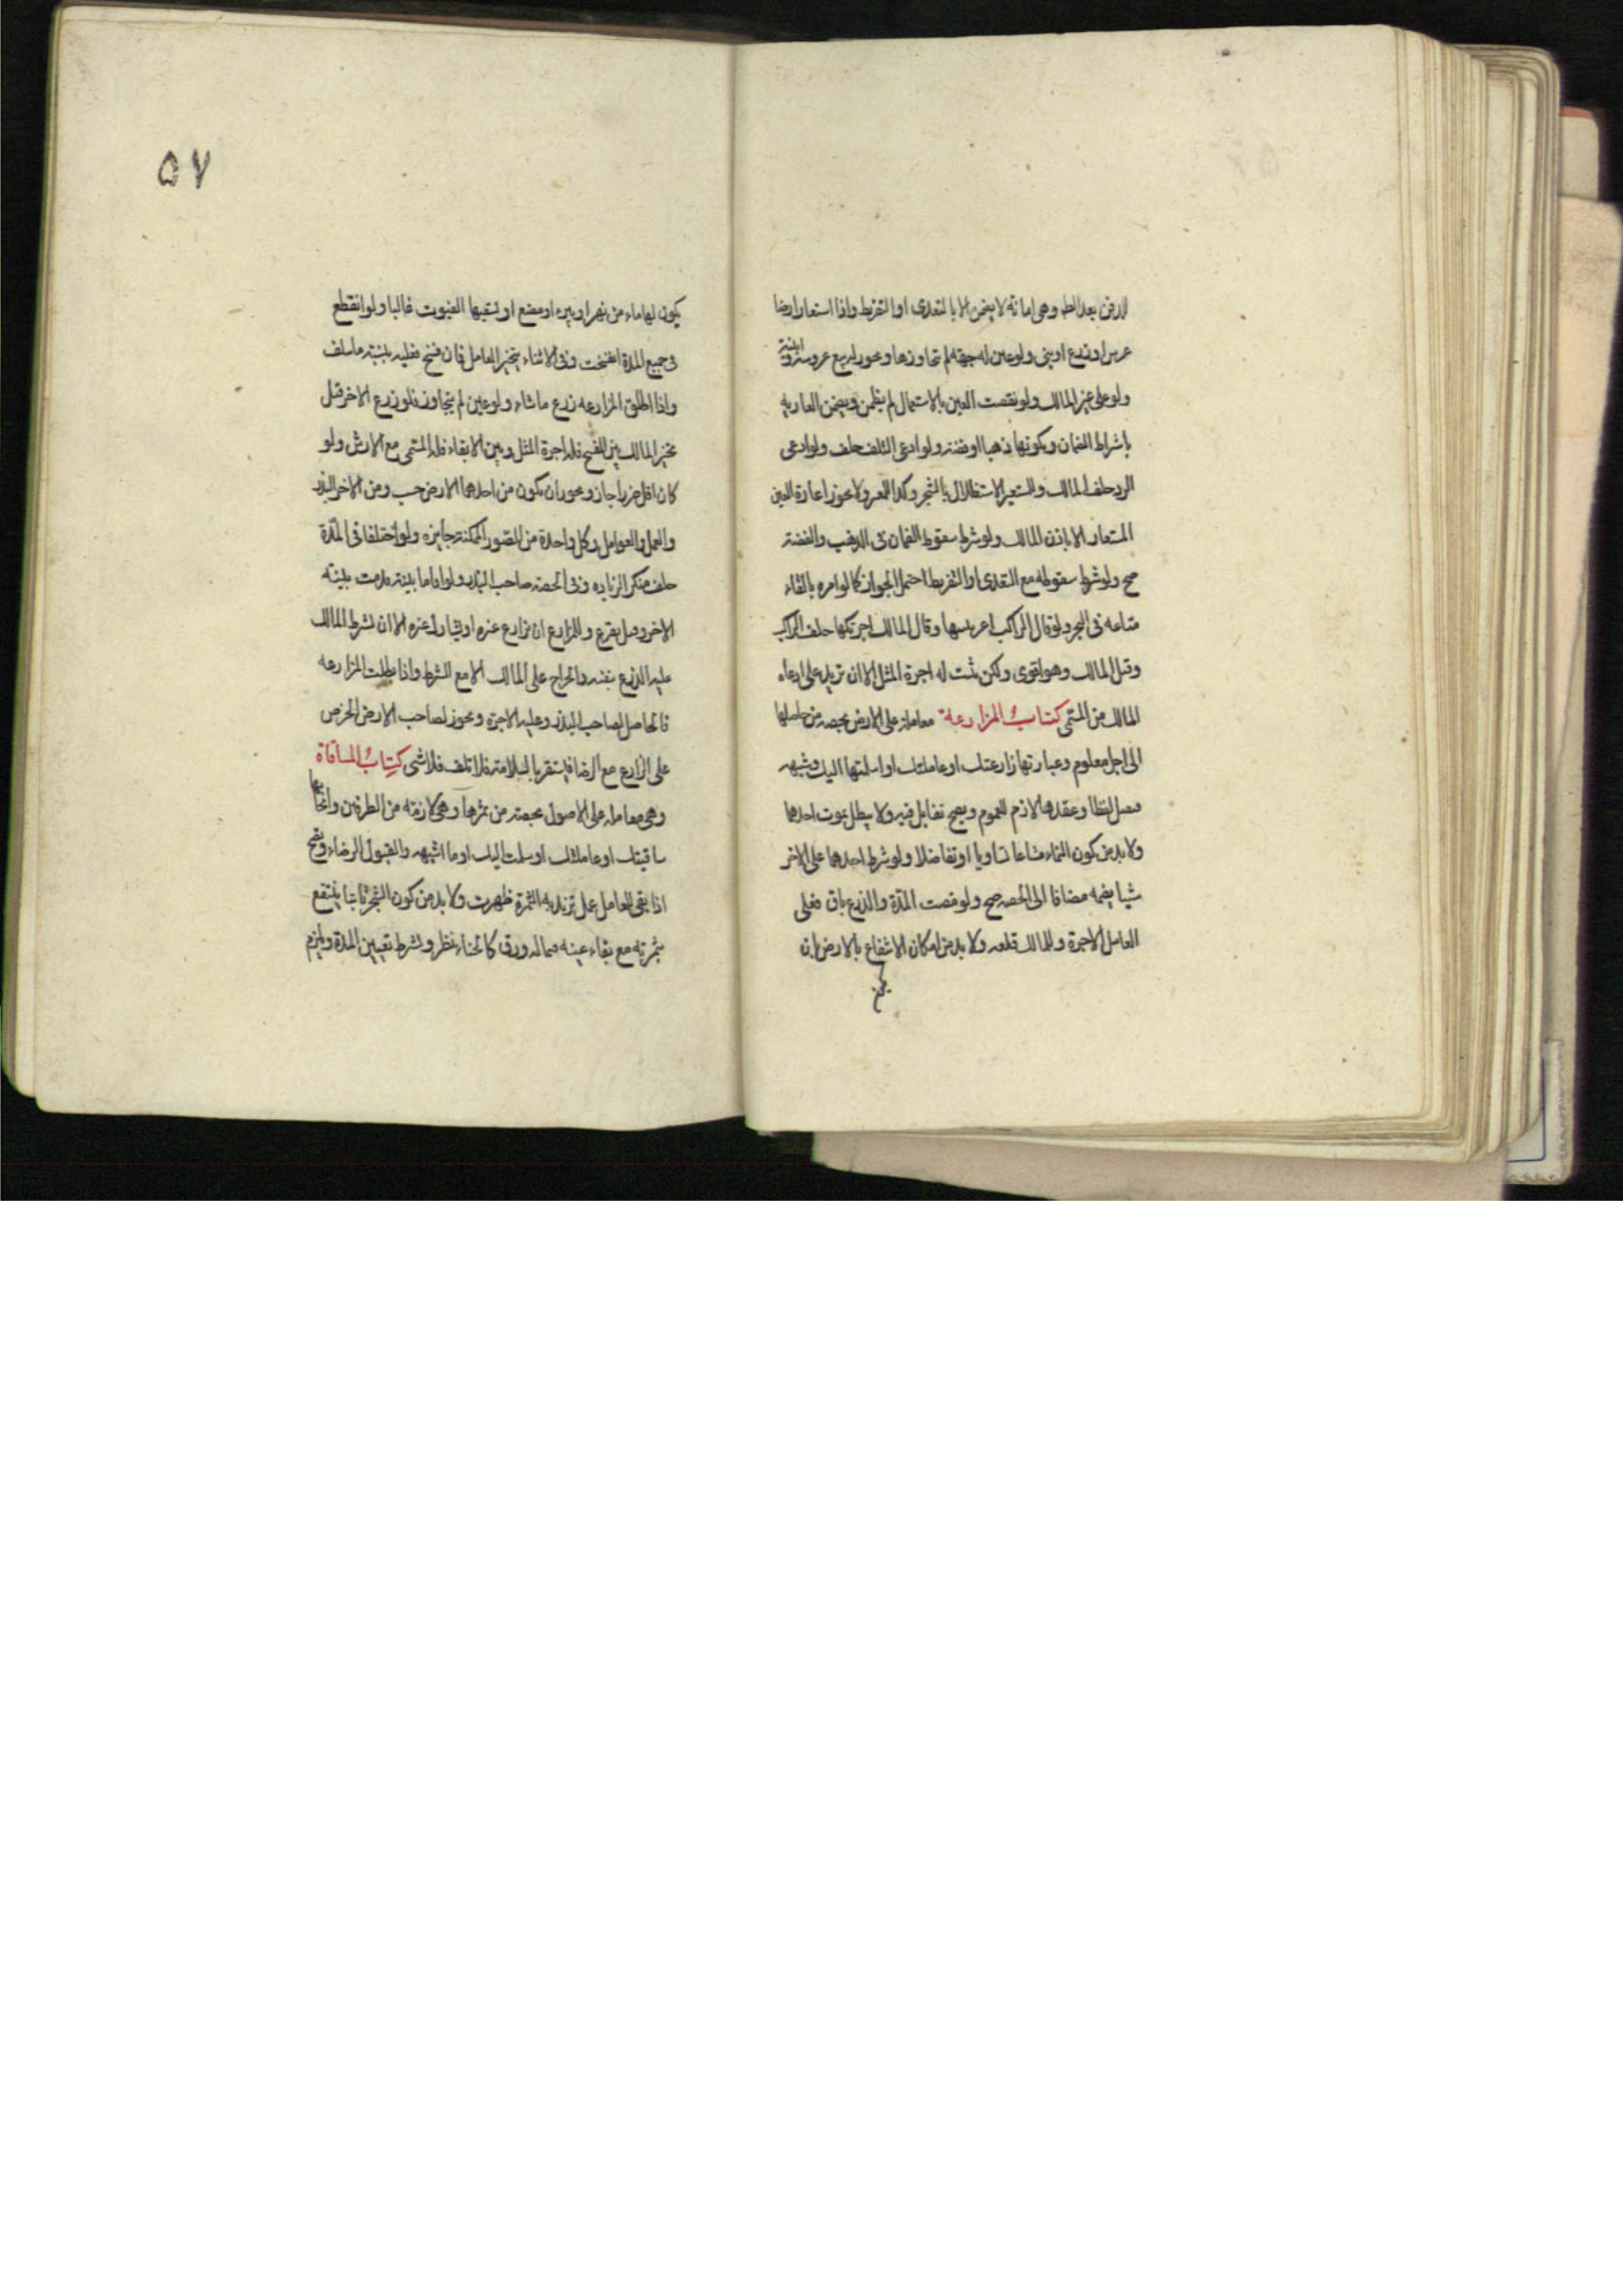 للدفن بعد الطم وهى امانة لا يضمن الا بالتعدى او التفريط واذا استعار ارضا
غرس او زرع او بنى ولو عين له جهة لم يتجاوزها ويجوز له بيع غروسه وابنيته
ولو على غير المالك ولو نقصت العين بالاستعمال لم يضمن ويضمن العاريه
باشتراط الضمان وبكونها ذهبا او فضة ولو ادعى التلف حلف ولو ادعى
الرد حلف المالك وللمستعير الاستظلال بالشجر وكذا للمعير ولا يجوز اعارة العين
المستعار الا باذن المالك ولو شرط سقوط الضمان فى الذهب والفضة
صح ولو شرط سقوطه مع التعدى او التفريط احتمل الجواز كما لو امره بالقاء
متاعه فى البحر ولو قال الراكب اعرتنيها وقال المالك اجرتكها حلف الراكب
وقيل المالك وهو اقوى ولكن يثبت له اجرة المثل الا ان تزيد على ما ادعاه
المالك من المسمى كتاب المزارعة معاملة على الارض بحصة من حاصلها
الى اجل معلوم وعبارتها زارعتك او عاملتك او سلمتها اليك وشبهه
فيقبل لفظا وعقدها لازم للعموم ويصح تقايل فيه ولا يبطل بموت احدهما
ولا بد من كون النماء مشاعا تساويا او تفاضلا ولو شرط احدهما على الاخر
شيا يضمه مضافا الى الحصه صح ولو مضت المدة والزرع باق فعلى
العامل الاجرة وللمالك قلعه ولا بد من امكان الانتفاع بالارض بان
يكون
۵۷
يكون لها ماء من نهر او بير او مصنع او تسقيها الغيوث غالبا ولو انقطع
فى جميع المدة انفسخت وفى الاثناء يتخير العامل فان فسخ فعليه بنسبة ما سلف
واذا اطلق المزارعه زرع ما شاء ولو عين لم يتجاوز فلو زرع الاضر قيل
تخير المالك بين الفسخ فله اجرة المثل وبين الابقاء فله المسمى مع الارش ولو
كان اقل ضررا جاز ويجوز ان يكون من احدهما الارض حسب ومن الاخر البذر
والعمل والعوامل وكل واحدة من الصور الممكنة جايزه ولو اختلفا فى المدة
حلف منكر الزياده وفى الحصة صاحب البذر ولو اقاما بينة قدمت بينة
الاخر وقيل يقرع وللزارع ان يزارع غيره او يشارك غيره الا ان يشرط المالك
عليه الزرع بنفسه والخراج على المالك الا مع الشرط واذا بطلت المزارعه
فالحاصل لصاحب البذر وعليه الاجرة ويجوز لصاحب الارض الخرص
على الزارع مع الرضا فيستقر بالسلامة فلو تلف فلا شى كتاب المساقاة
وهى معاملة على الاصول بحصة من ثمرها وهى لازمة من الطرفين وايجابها
ساقيتك او عاملتك او سلمت اليك او ما اشبهه والقبول الرضاء وتصح
اذا بقى للعامل عمل تزيد به الثمرة ظهرت ولا بد من كون الشجر ثابتا ينتفع
بثمرته مع بقاء عينه وفيما له ورق كالحناء نظر ويشرط تعيين المدة ويلزم